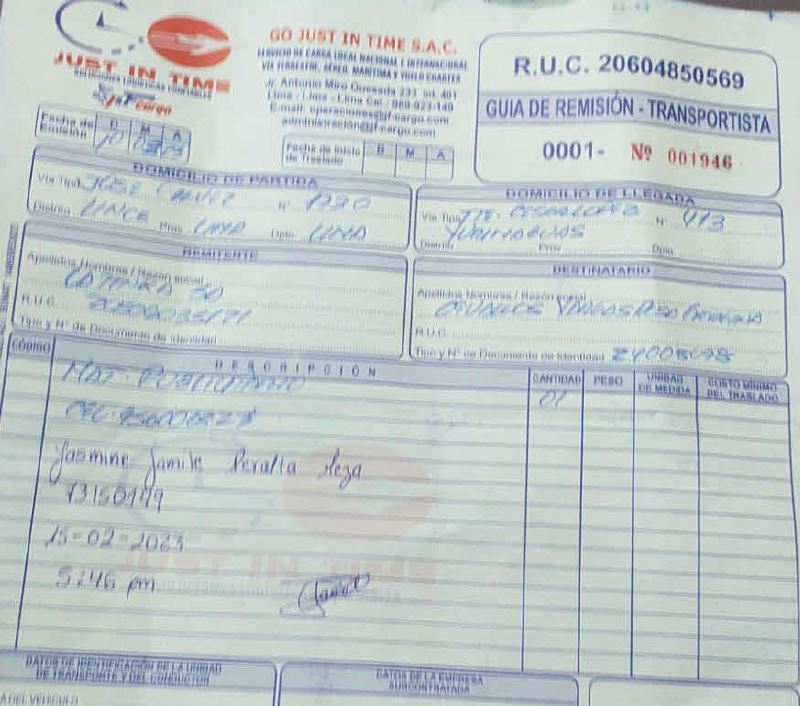 JUST IN TIME
SOLUCIONES LOGISTICAS CONFIABLES
JIT cargo
GO JUST IN TIME S.A.C.
SERVICIO DE CARGA LOCAL NACIONAL E INTERNACIONAL
VÍA TERRESTRE, AÉREO, MARÍTIMA Y VUELO CHARTER
Jr. Antonio Miro Quesada 233 int. 401
Lima - Lima - Lima Cel.: 989-923-149
E-mail: operaciones@jit-cargo.com
administracion@jit-cargo.com
R.U.C. 20604850569
GUIA DE REMISIÓN - TRANSPORTISTA
0001- Nº 001946
Fecha de Emisión D M A
10
Fecha de Inicio de Traslado D M A
DOMICILIO DE PARTIDA
Vía Tipo JOSE GALVEZ N° 1290
Distrito LINCE Prov. LIMA Dpto. LIMA
DOMICILIO DE LLEGADA
Vía Tipo TTE. CESAR LOPEZ N° 413
Distrito YURIMAGUAS Prov. Dpto.
REMITENTE
Apellidos Nombres / Razón social
R.U.C.
Tipo y N° de Documento de Identidad
DESTINATARIO
Apellidos Nombres / Razón social
R.U.C.
Tipo y N° de Documento de Identidad
CÓDIGO DESCRIPCIÓN CANTIDAD PESO UNIDAD DE MEDIDA COSTO MÍNIMO DEL TRASLADO
MAT. PUBLICITARIO 01
CEL.
Jasmine Jamile Peralta Meza
73150149
15-02-2023
5:46 pm
JUST IN TIME
DATOS DE IDENTIFICACIÓN DE LA UNIDAD
DE TRANSPORTE Y DEL CONDUCTOR
DATOS DE LA EMPRESA
SUBCONTRATADA